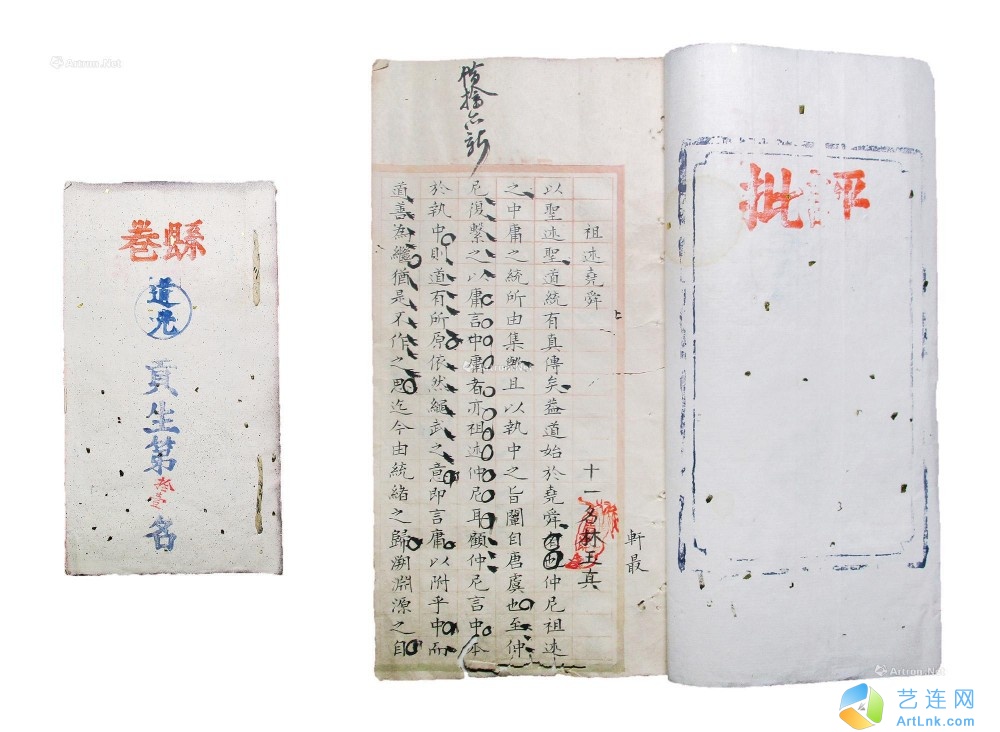 縣卷
道光
貢生第
叁壹
名
批評
軒最
十一名林玉真
祖述堯舜
以聖述聖道統有真傳矣蓋道始於堯舜自仲尼祖述
之中庸之統所由集與且以執中之旨闡自唐虞也至仲
尼復繫之以庸言中庸者亦祖述仲尼耳顧仲尼言中本
於執中則道有所原依然繩武之意即言庸以附乎中而
道善為繼猶是不作之思迄今由統緒之歸溯淵源之自
Artron.Net
Artron.Net
Artron.Net
艺连网
ArtLnk.com